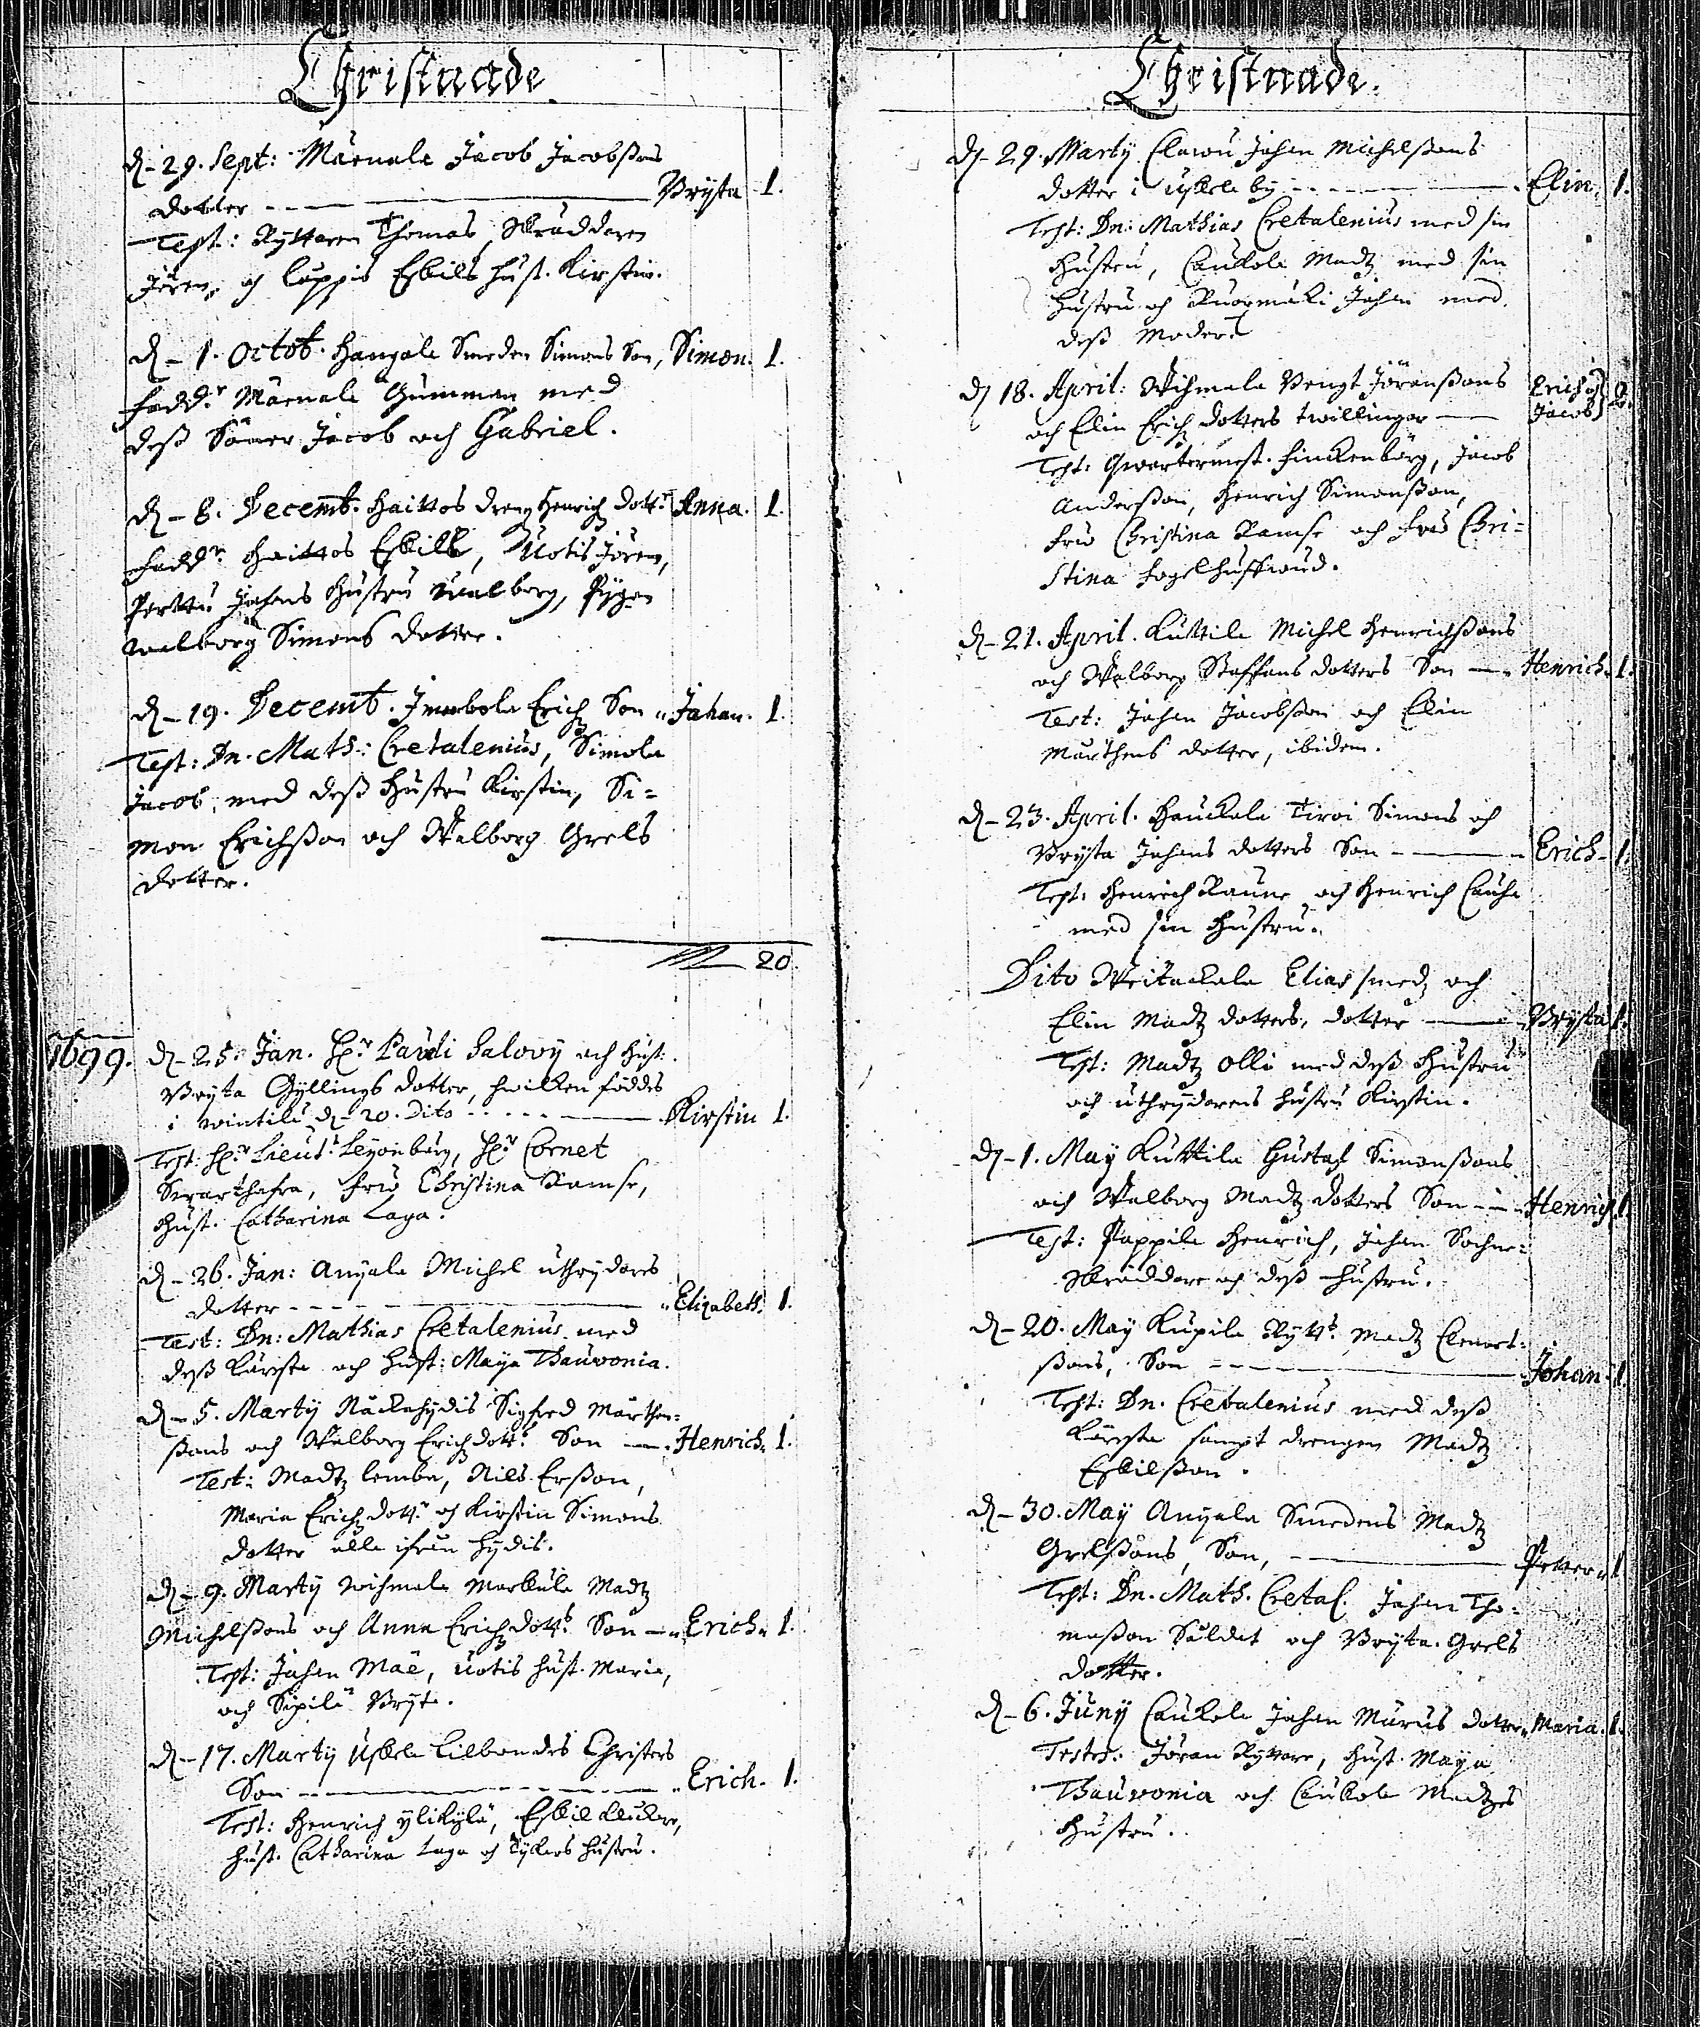 Christnade
d. 29. Sept: Mäenala Jacob Jacobßons
dotter - - - Brijta 1.
Test: Ryttaren Thomas, Skräddaren
Jören, och Luppis Eskils hust. Kirstin.
d. 1. Octob. Hangala Smeden Simons Son, Simon. 1.
fadd.r Mäenala Gumman med
deß Söner Jacob och Gabriel.
d. 8. Decemb. Haittos dreng Henrich dott.r Anna. 1.
fadd.r Haittos Eskill, Uotis Jören,
Perttu Johans hustru Walborg, Pigan
Walborg Simons dotter.
d. 19. Decemb. Erich Son Johan. 1.
Test: Dn. Math: Cretalenius, Simola
Jacob, med deß hustru Kirstin, Si=
mon Erichßon och Walborg Grels
dotter.
20.
1699.
d. 25. Jan. H.r Pauli Salovij och hust:
Brijta Gyllings dotter, hwilken föddes
i wintilä d. 20. Dito - - - Kirstin 1.
Test: H.r Lieut: Leijonbärg, H.r Cornet
Swarthafra, fru Christina Ramse,
hust. Catharina Laga.
d. 26. Jan: Anjala Michel uthrijdares
dotter - - - Elizabeth. 1.
Test: Dn: Mathias Cretalenius med
deß Käresta och hust: Maija Thauvonia.
d. 5. Martij Näckehydis Sigfred Mårthen=
ßons och Walborg Erichdott.s Son - Henrich. 1.
Test: Madtz Lemba, Nils Erßon,
Maria Erichdott.r och Kirstin Simons
dotter alla ifrån hydis.
d. 9. Martij Wihmala Markula Madtz
Michelßons och Anna Erichdott.s Son - Erich. 1.
Test: Johan Mäe, Uotis hust. Maria,
och Sipilä Brijta.
d. 17. Martij Uskela Lilbondes Christers
Son - - - Erich. 1.
Test: Henrich ylikylä, Eskil Kluckare,
hust. Catharina Laga och hustru.
Christnade.
d. 29. Martij Elawu Johan Michelßons
dotter i uskela by - - - Elin. 1.
Test: Dn: Mathias Cretalenius med sin
hustru, Caukola Madtz med sin
hustru och Ruoxmäki Johan med
deß Moder.
d. 18. April: Wihmala Bengt Jöranßons
och Elin Erichdotters twillingar - Erich och Jacob 2.
Test: Qwartermest. Finckenbärg, Jacob
Anderßon, Henrich Simonßon,
fru Christina Ramse och fru Chri=
stina Fogelhuffwud.
d. 21. April. Kuttila Michel Henrichßons
och Walborg Staffans dotters Son - Henrich. 1.
Test: Johan Jacobßon och Elin
Mårthens dotter, ibidem.
d. 23. April. Hauckala Tiroi Simons och
Brijta Johans dotters Son - - - Erich. 1.
Test: Henrich Raune och Henrich Cauha
med sin hustru.
Dito Weitackala Elias smedz och
Elin Madtz dotters, dotter - Brijta 1.
Test: Madtz Olli med deß hustru
och uthrijdarens hustru Kirstin.
d. 1. Maij Kuttila Gustaf Simonßons
och Walborg Madtz dotters Son - Henrich. 1.
Test: Pappila Henrich, Johan Sochne=
skräddare och deß hustru.
d. 20. Maij Kupila Rytt.s Madtz Clemet=
ßons, Son - - - Johan. 1.
Test: Dn. Cretalenius med deß
Käresta sampt drengen Madtz
Eskilßon.
d. 30. Maij Anjala Smedens Madtz
Grelßons, Son, - - - Petter. 1.
Test: Dn. Math. Cretal. Johan Tho=
maßon Såldat och Brijta Grels
dotter.
d. 6. Junij Caukola Johan Murus dotter Maria. 1.
Testes: Jöran Ryttare, hust. Maija
Thauvonia och Caukola Madtzes
hustru.